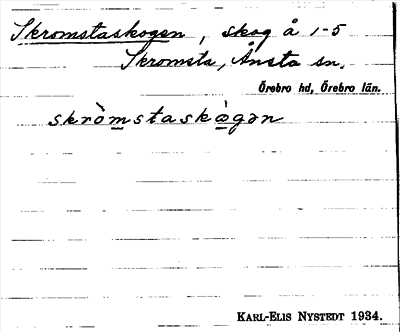 Skromstaskogen, skog å 1-5
Skromsta, Ånsta sn.
Örebro hd, Örebro län.
skrò̀m̲staskò̲gən
KARL-ELIS NYSTEDT 1934.